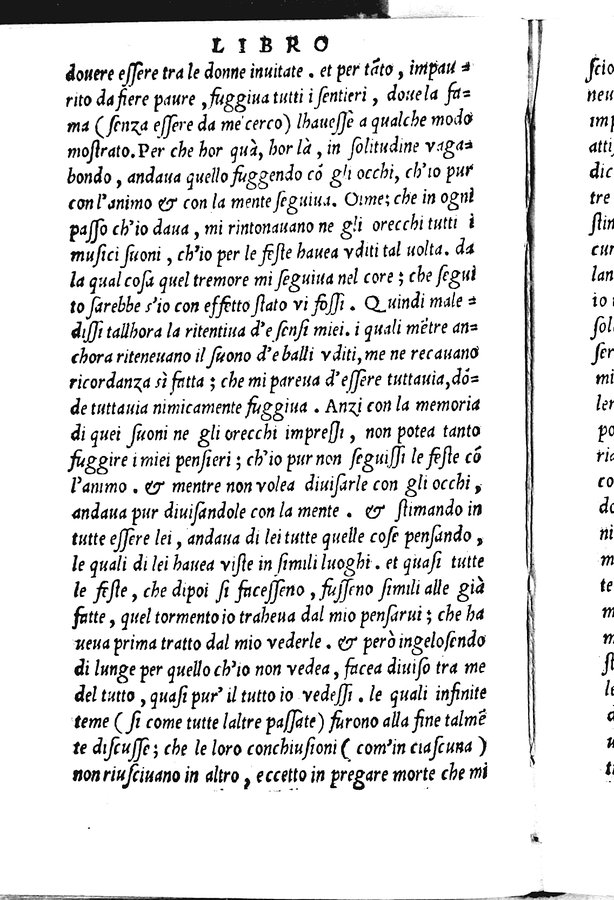 LIBRO
douere eſſere tra le donne inuitate . et per tāto , impau =
rito da fiere paure , fuggiua tutti i ſentieri , doue la fa=
ma ( ſenza eſſere da me cerco) lhaueſſe a qualche modo
moſtrato. Per che hor quà, hor là , in ſolitudine vaga=
bondo , andaua quello fuggendo cō gli occhi, ch'io pur
con l'animo & con la mente ſeguiua. Oime; che in ogni
paſſo ch'io daua , mi rintonauano ne gli orecchi tutti i
muſici ſuoni , ch'io per le feſte hauea vditi tal uolta. da
la qual coſa quel tremore mi ſeguiua nel core ; che ſegui
to ſarebbe s'io con effetto ſtato vi foſſi . Quindi male =
diſſi tallhora la ritentiua d'e ſenſi miei. i quali mētre an=
chora riteneuano il ſuono d'e balli vditi, me ne recauano
ricordanza sì fatta ; che mi pareua d'eſſere tuttauia, dō=
de tuttauia nimicamente fuggiua . Anzi con la memoria
di quei ſuoni ne gli orecchi impreſſi , non potea tanto
fuggire i miei penſieri ; ch'io pur non ſeguiſſi le feſte cō
l'animo . & mentre non volea diuiſarle con gli occhi ,
andaua pur diuiſandole con la mente . & ſtimando in
tutte eſſere lei , andaua di lei tutte quelle coſe penſando ,
le quali di lei hauea viſte in ſimili luoghi . et quaſi tutte
le feſte , che dipoi ſi faceſſeno , fuſſeno ſimili alle già
fatte , quel tormento io traheua dal mio penſarui ; che ha
ueua prima tratto dal mio vederle . & però ingeloſendo
di lunge per quello ch'io non vedea , facea diuiſo tra me
del tutto , quaſi pur' il tutto io vedeſſi . le quali infinite
teme ( ſi come tutte laltre paſſate) furono alla fine talmē
te diſcuſſe ; che le loro conchiuſioni ( com'in ciaſcuna )
non riuſciuano in altro , eccetto in pregare morte che mi